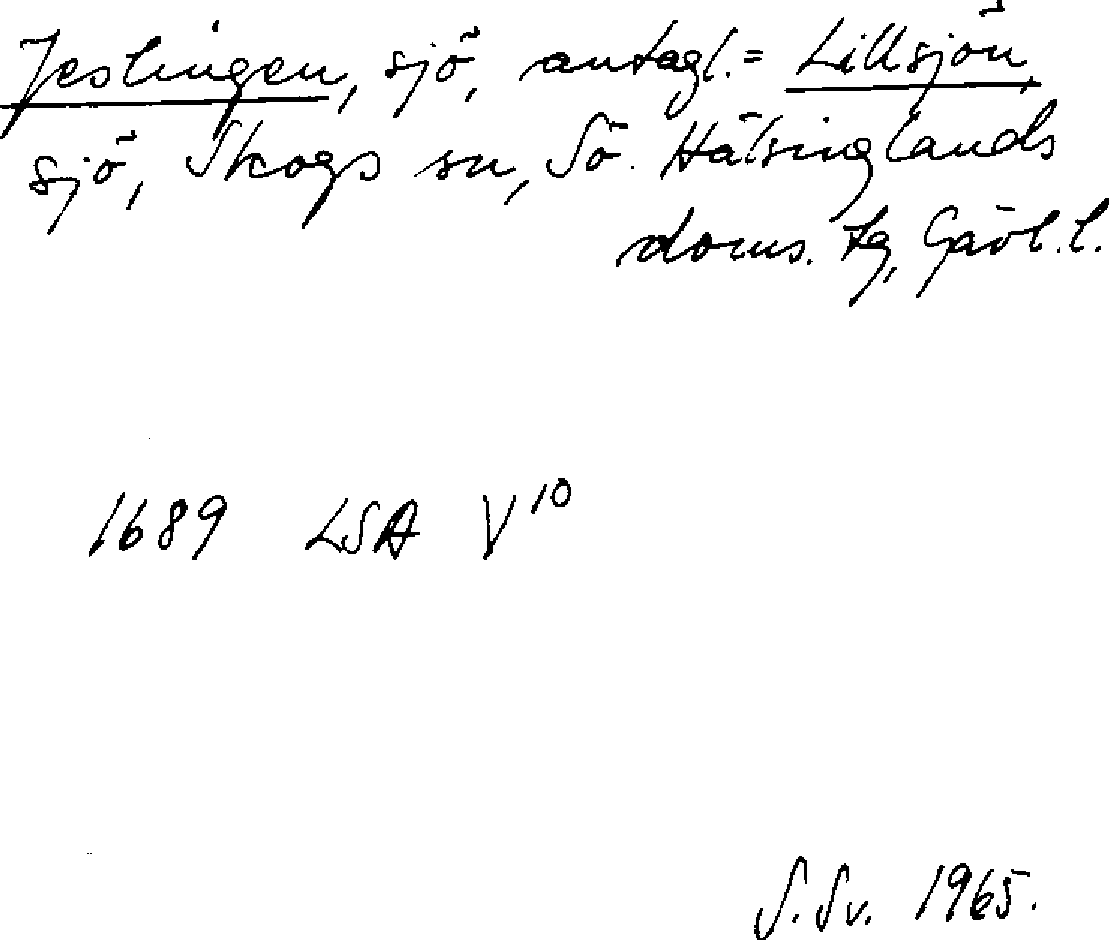 Jeslingen, sjö, antagl. = Lillsjön,
sjö, Skogs sn, Sö. Hälsinglands
doms. tg, Gävl. l.
1689 LSA V¹⁰
S. Sv. 1965.